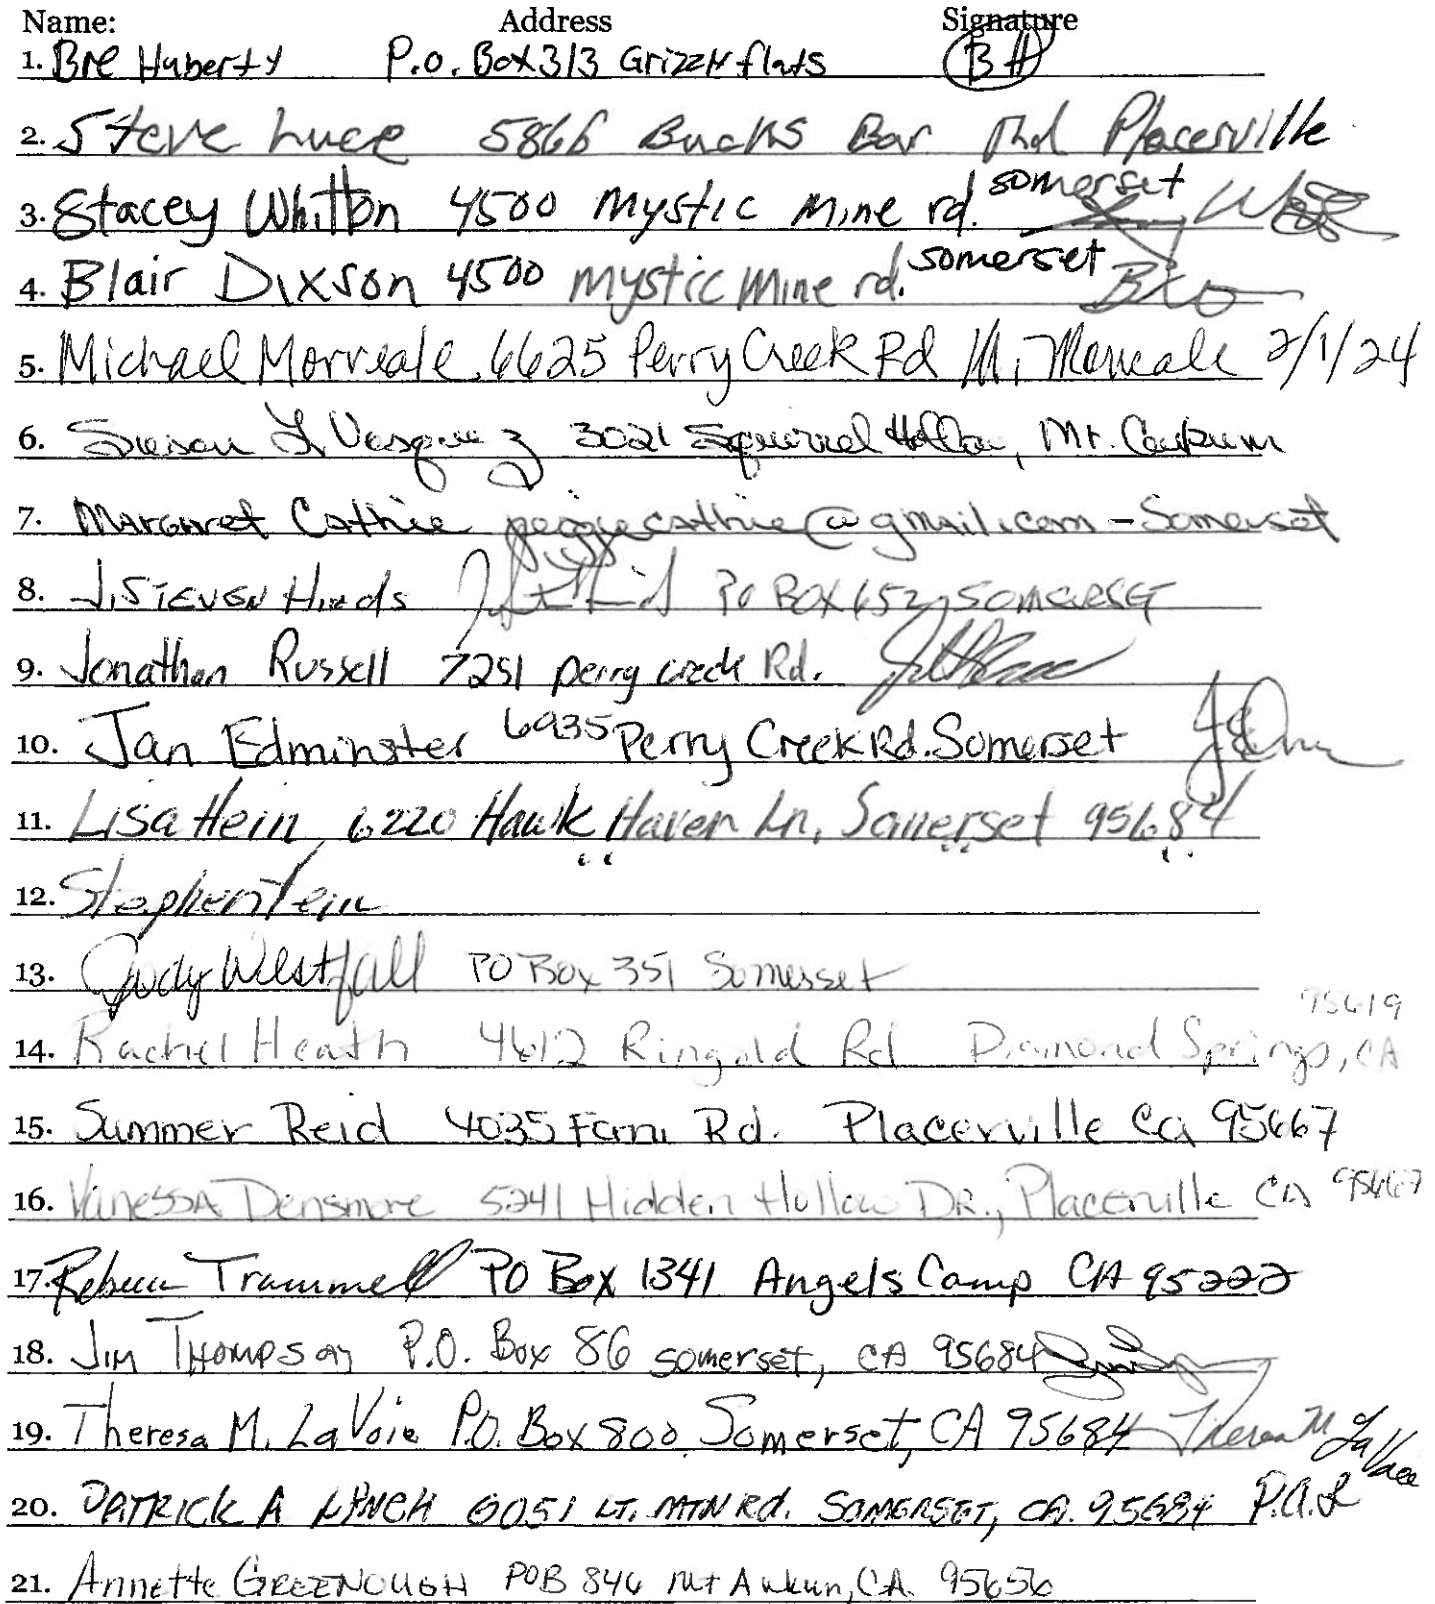 Name: Address Signature
1. Bre Huberty P.O. Box 313 Grizzly flats BH
2. Steve Luce 5866 Bucks Bar Rd Placerville
3. Stacey Whitton 4500 Mystic Mine rd. somerset
4. Blair Dixson 4500 mystic Mine rd. somerset
5. Michael Morreale 6625 Perry Creek Rd M. Morreale 2/1/24
6. Susan L Vasquez 3021 Squirrel Hollow, Mt.
7. Margaret Cathie peggiecathie@gmail.com - Somerset
8. J. STEVEN Hinds PO BOX 652, SOMERSET
9. Jonathan Russell 7251 perry creek Rd.
10. Jan Edminster 6935 Perry Creek Rd. Somerset
11. Lisa Hein, 6220 Hawk Haven Ln, Somerset 95684
12. Stephen
13. Judy Westfall PO Box 351 Somerset
14. Rachel Heath 4612 Ringold Rd Diamond Springs, CA 95619
15. Summer Reid 4035 Rd. Placerville Ca 95667
16. Vanessa Densmore 5241 Hidden Hollow DR., Placerville CA 95667
17. Rebecca Trammell PO Box 1341 Angels Camp CA 95222
18. Jim Thompson P.O. Box 86 somerset, CA 95684
19. Theresa M. LaVoie P.O. Box 800 Somerset, CA 95684 Theresa M LaVoie
20. PATRICK A LYNCH 6051 LT. MTN Rd. SOMERSET, CA. 95684 P.A.L
21. Annette GREENOUGH POB 846 Mt Aukun, CA. 95656